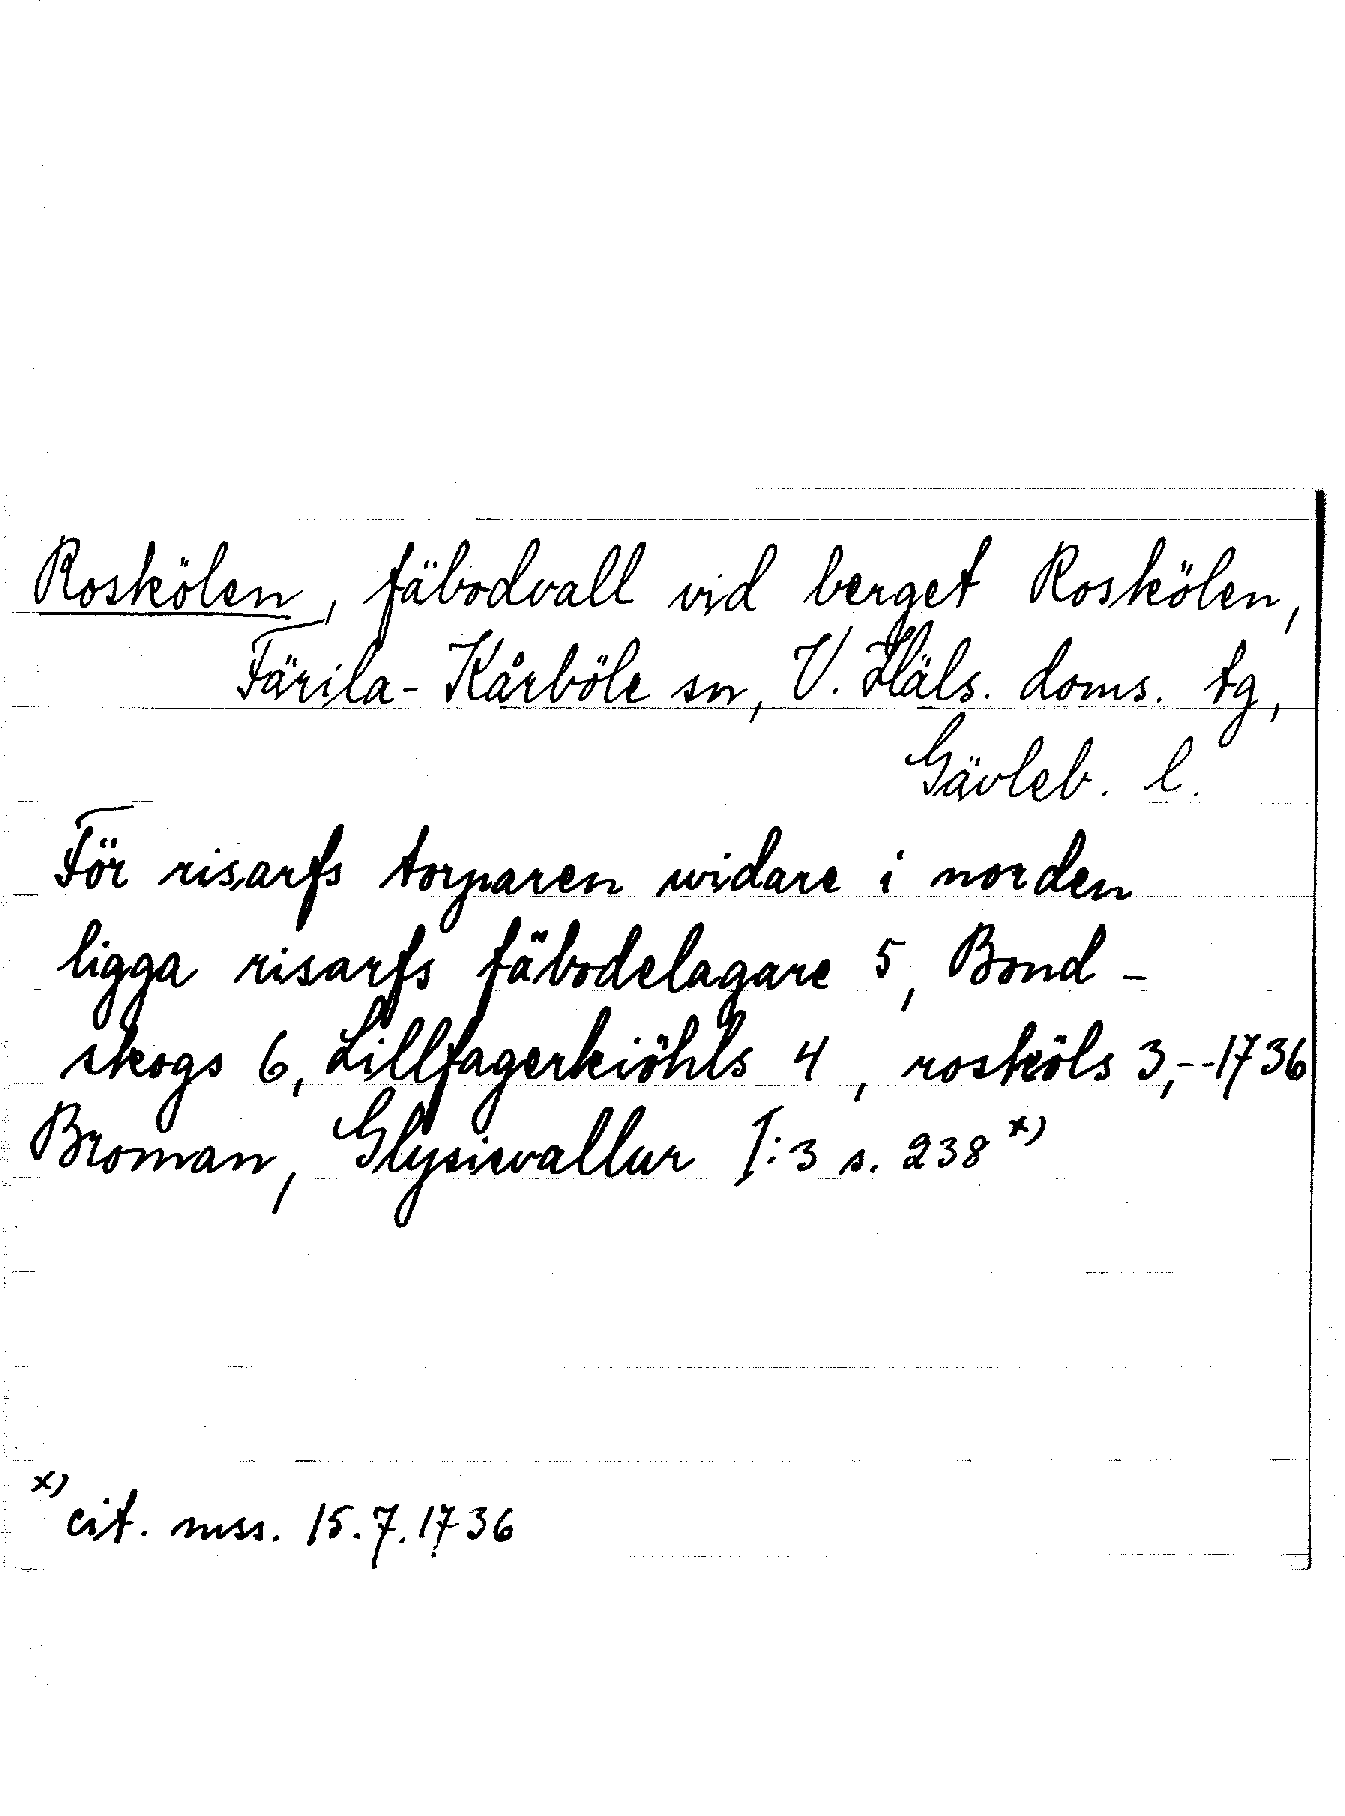 Roskölen, fäbodvall vid berget Roskölen,
Färila-Kårböle sn, V. Häls. doms. tg,
Gävleb. l.
För risarfs torparen widare i norden
ligga risarfs fäbodelagare 5, Bond-
skogs 6, Lillfagerkiöhls 4, rosköls 3,--1736
Broman, Glysisvallur I:3 s. 238 x)
x) cit. mss. 15.7.1736